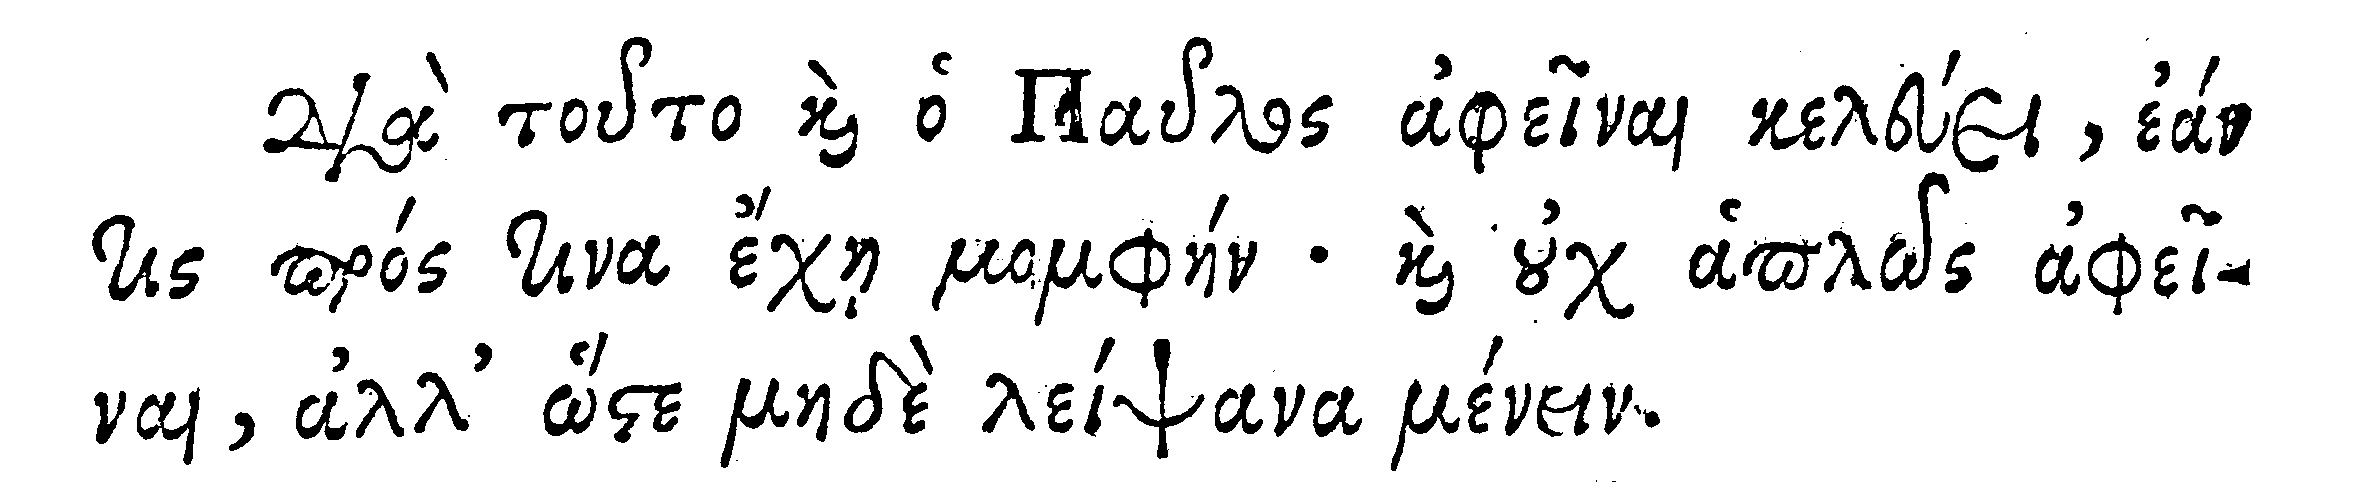 Διὰ τοῦτο καὶ ὁ Παῦλος ἀφεῖναι κελεύει, ἐάν
τις πρός τινα ἔχῃ μομφήν· καὶ οὐχ ἁπλῶς ἀφεῖ-
ναι, ἀλλ’ ὥστε μηδὲ λείψανα μένειν.